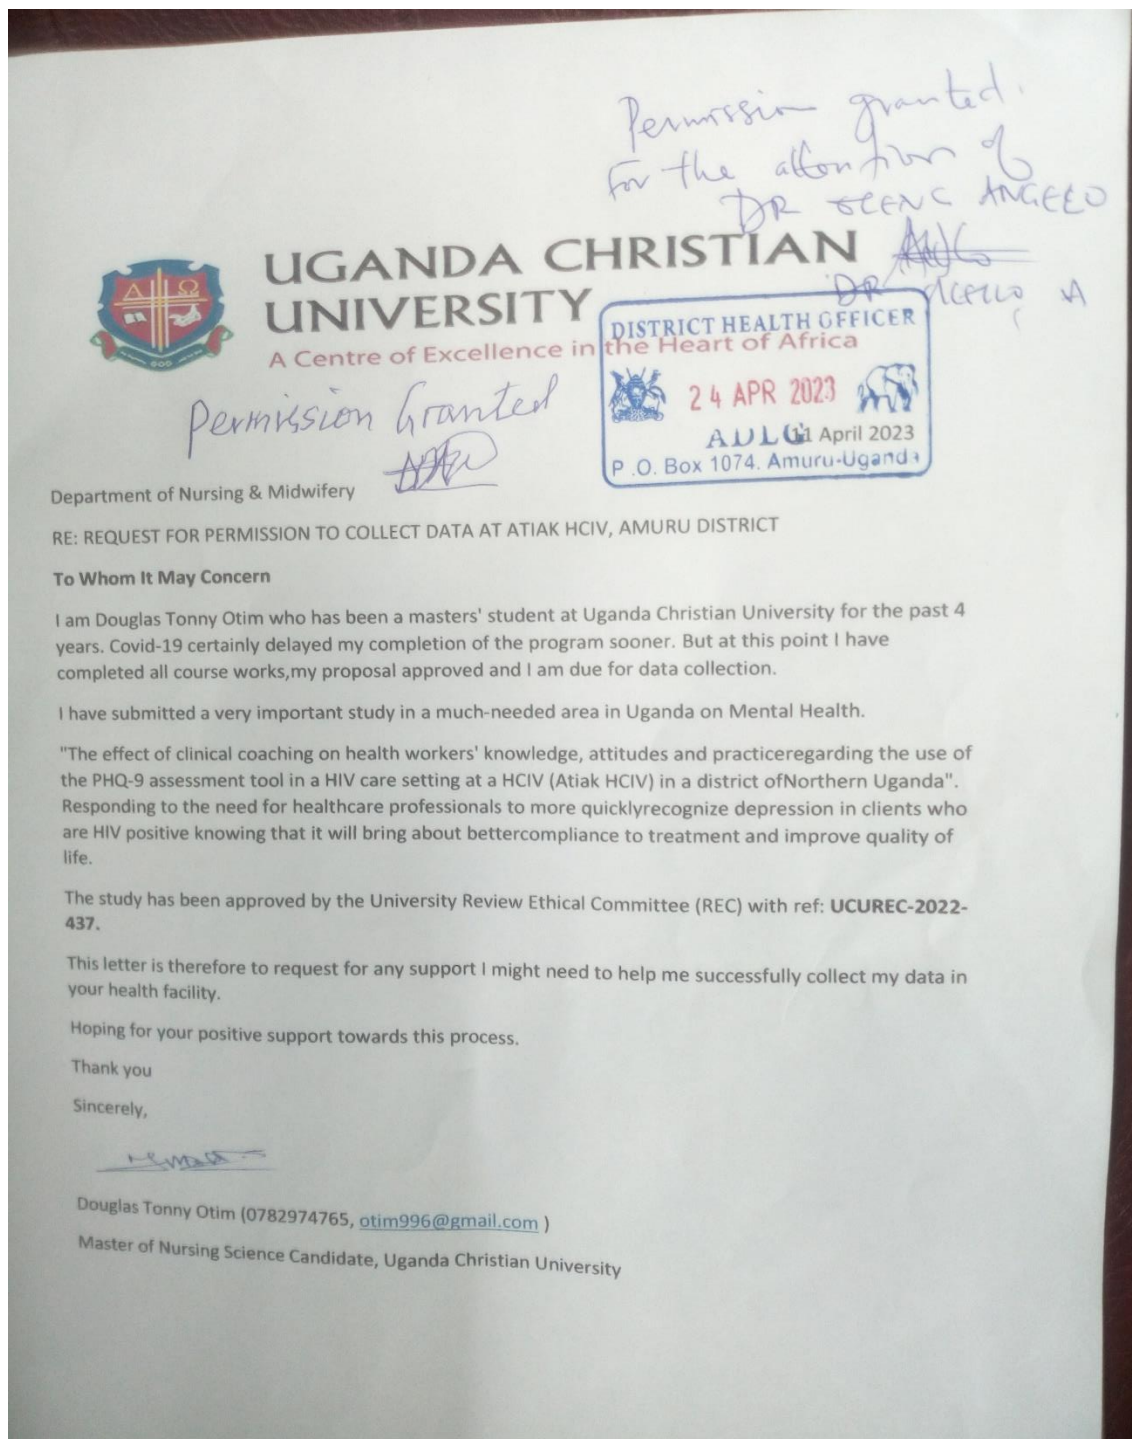 Permission granted.
For the attention of
DR ANGELO
UGANDA CHRISTIAN
UNIVERSITY
A Centre of Excellence in the Heart of Africa
DR A
DISTRICT HEALTH OFFICER
24 APR 2023
11 April 2023
P.O. Box 1074. Amuru-Uganda
Permission Granted
Department of Nursing & Midwifery
RE: REQUEST FOR PERMISSION TO COLLECT DATA AT ATIAK HCIV, AMURU DISTRICT
To Whom It May Concern
I am Douglas Tonny Otim who has been a masters' student at Uganda Christian University for the past 4
years. Covid-19 certainly delayed my completion of the program sooner. But at this point I have
completed all course works,my proposal approved and I am due for data collection.
I have submitted a very important study in a much-needed area in Uganda on Mental Health.
"The effect of clinical coaching on health workers' knowledge, attitudes and practiceregarding the use of
the PHQ-9 assessment tool in a HIV care setting at a HCIV (Atiak HCIV) in a district ofNorthern Uganda".
Responding to the need for healthcare professionals to more quicklyrecognize depression in clients who
are HIV positive knowing that it will bring about bettercompliance to treatment and improve quality of
life.
The study has been approved by the University Review Ethical Committee (REC) with ref: UCUREC-2022-
437.
This letter is therefore to request for any support I might need to help me successfully collect my data in
your health facility.
Hoping for your positive support towards this process.
Thank you
Sincerely,
Douglas Tonny Otim (0782974765, otim996@gmail.com )
Master of Nursing Science Candidate, Uganda Christian University